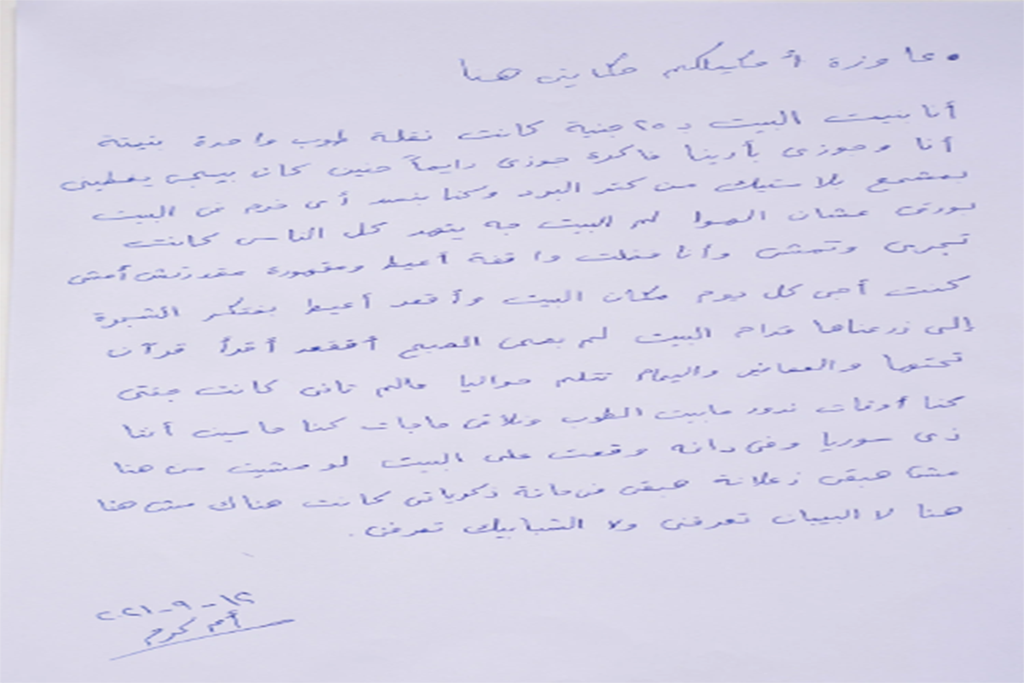 • عاوزة أحكيلكم حكايتى هنا
أنا بنيت البيت بـ ٢٥ جنية كانت نقلة طوب واحدة بنيتة
أنا وجوزى بأدينا فاكرة جوزى دايماً حنين كان بيجى يغطينى
بمشمع بلاستيك من كتر البرد وكنا بنسد أى خرم فى البيت
بورق عشان الهوا لم البيت جه يتهد كل الناس كانت
تجرى وتمشى وأنا فضلت واقفة أعيط ومقهورة مقدرتش أمشى
كنت أجى كل يوم مكان البيت وأقعد أعيط بفتكر الشجرة
إلى زرعناها قدام البيت لم بصحى الصبح أقعد أقرأ قرآن
تحتها والعصافير واليمام تتلم حواليا عالم تانى كانت جنتى
كنا أوقات ندور مابين الطوب ونلاقى حاجات كنا حاسين أننا
زى سوريا وفى دانه وقعت على البيت لو مشيت من هنا
مش هبقى زعلانة هبقى فرحانة ذكرياتى كانت هناك مش هنا
هنا لا البيبان تعرفنى ولا الشبابيك تعرفنى.
١٢ - ٩ - ٢٠٢١
أم كرم